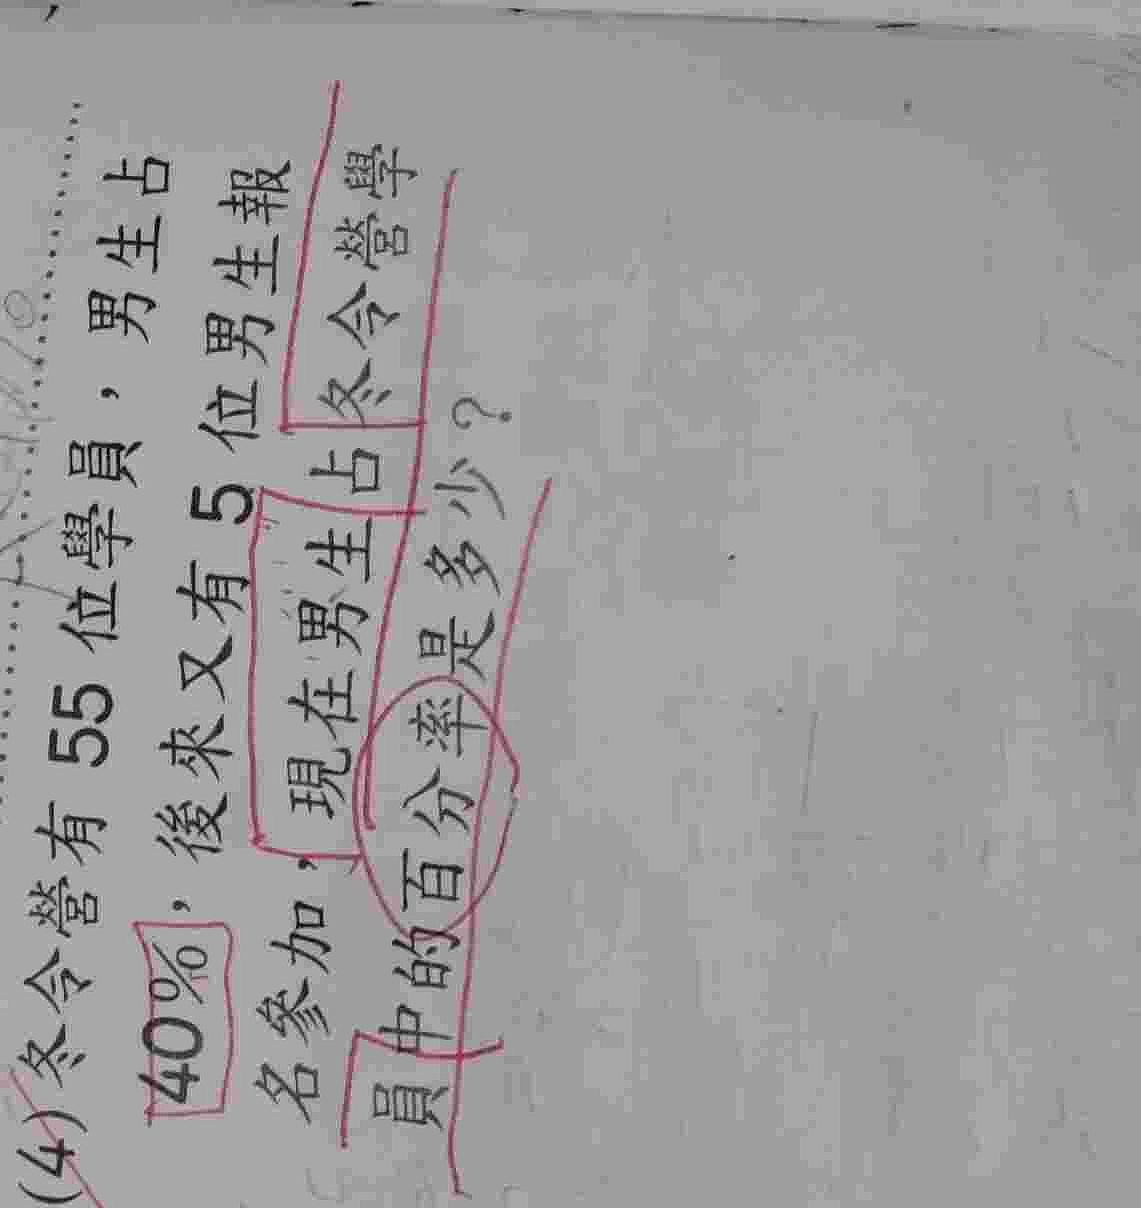 (4) 冬令營有 55 位學員，男生占
40%，後來又有 5 位男生報
名參加，現在男生占冬令營學
員中的百分率是多少？